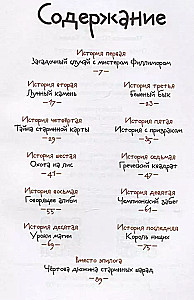 Содержание
История первая
Загадочный случай с мистером Филлимором
—7—
История вторая
Лунный камень
—17—
История третья
Бешеный бык
—23—
История четвёртая
Тайна старинной карты
—29—
История пятая
История с призраком
—35—
История шестая
Охота на лис
—41—
История седьмая
Греческий квадрат
—47—
История восьмая
Говорящее алиби
—55—
История девятая
Чемпионский забег
—61—
История десятая
Уроки магии
—69—
История
Король нищих
—75—
Вместо эпилога
Чёртова дюжина старинных шарад
—89—